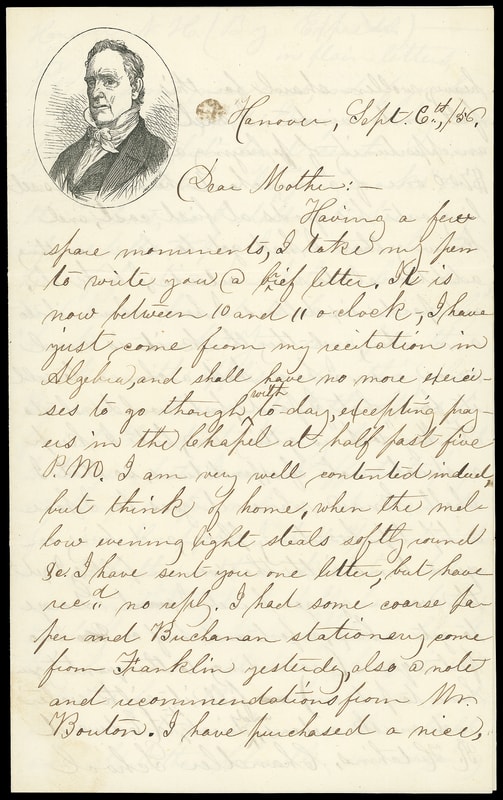 Hanover, Sept. 6th, /56.
Dear Mother: —
Having a few
spare momments, I take my pen
to write you @ brief letter. It is
now between 10 and 11 o clock, I have
just come from my recitation in
Algebra, and shall have no more exerci-
ses to go though with to-day, excepting pray-
ers in the Chapel at half past five
P.M. I am very well contented indeed,
but think of home, when the mel-
low evening light steals softly round
&c. I have sent you one letter, but have
rec'd no reply. I had some coarse pa-
per and Buchanan stationery come
from Franklin yesterday, also a note
and recommendations from Mr.
Bouton. I have purchased a nice,